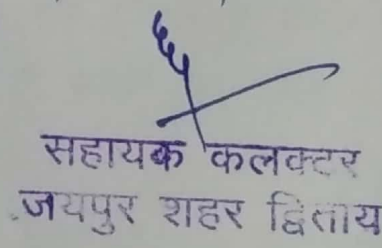 सहायक कलक्टर
जयपुर शहर द्विताय